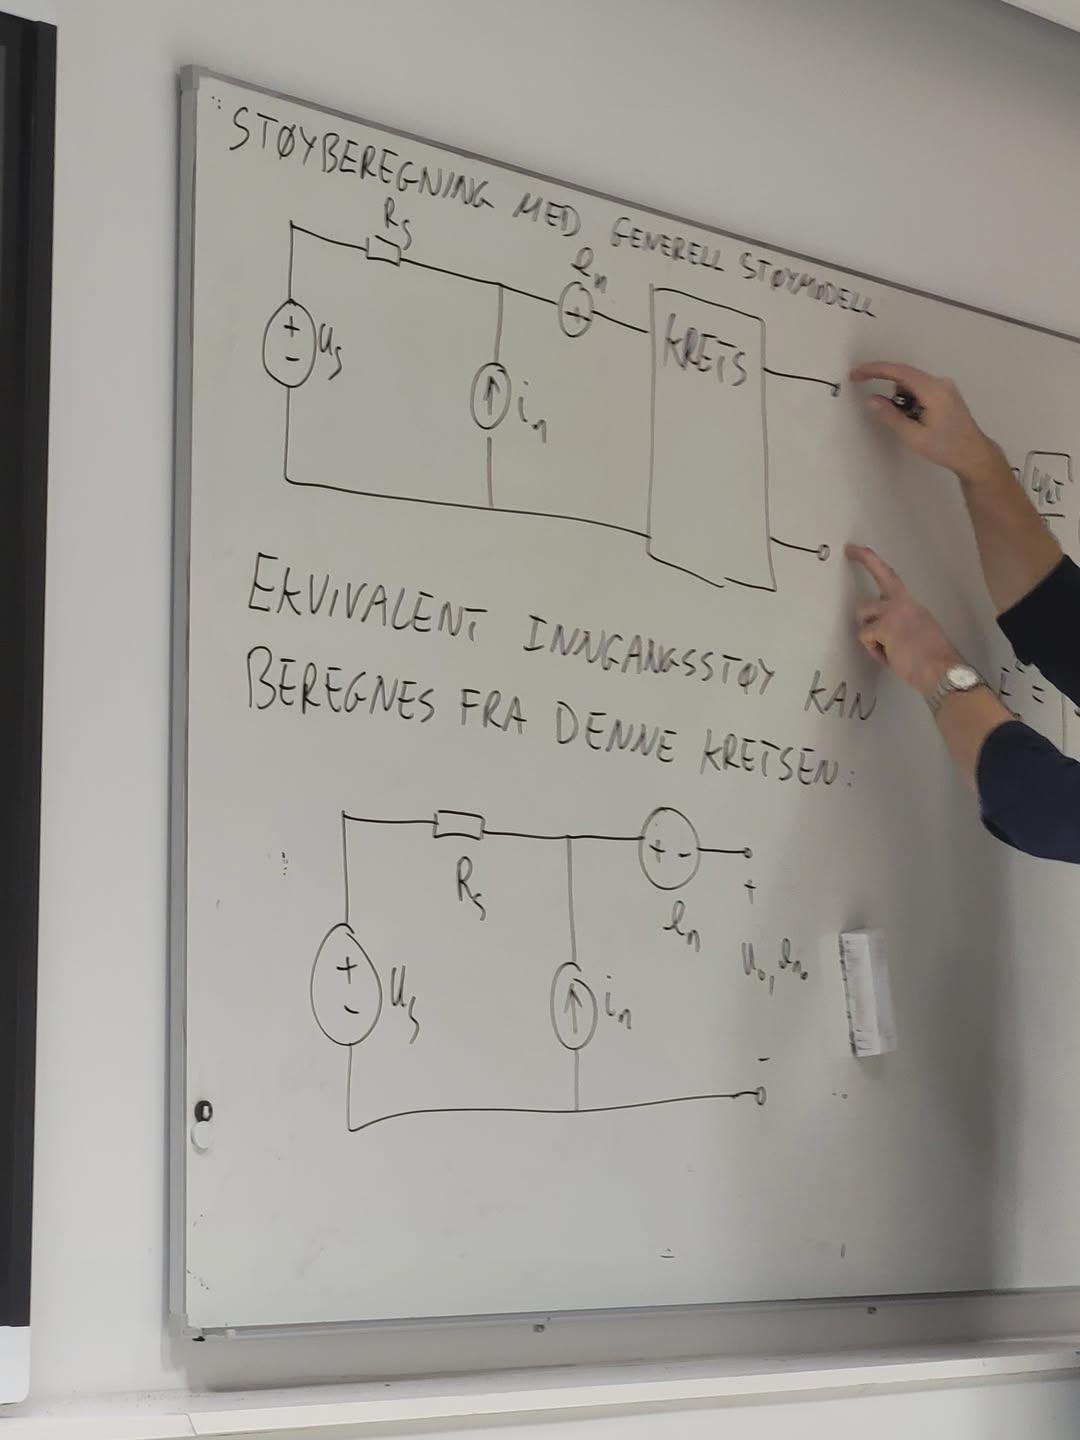 STØYBEREGNING MED GENERELL STØYMODELL
Rs
en
+
-
us
in
KRETS
EKVIVALENT INNGANGSSTØY KAN
BEREGNES FRA DENNE KRETSEN:
Rs
+ -
en
+
uo, eno
-
+
-
us
in